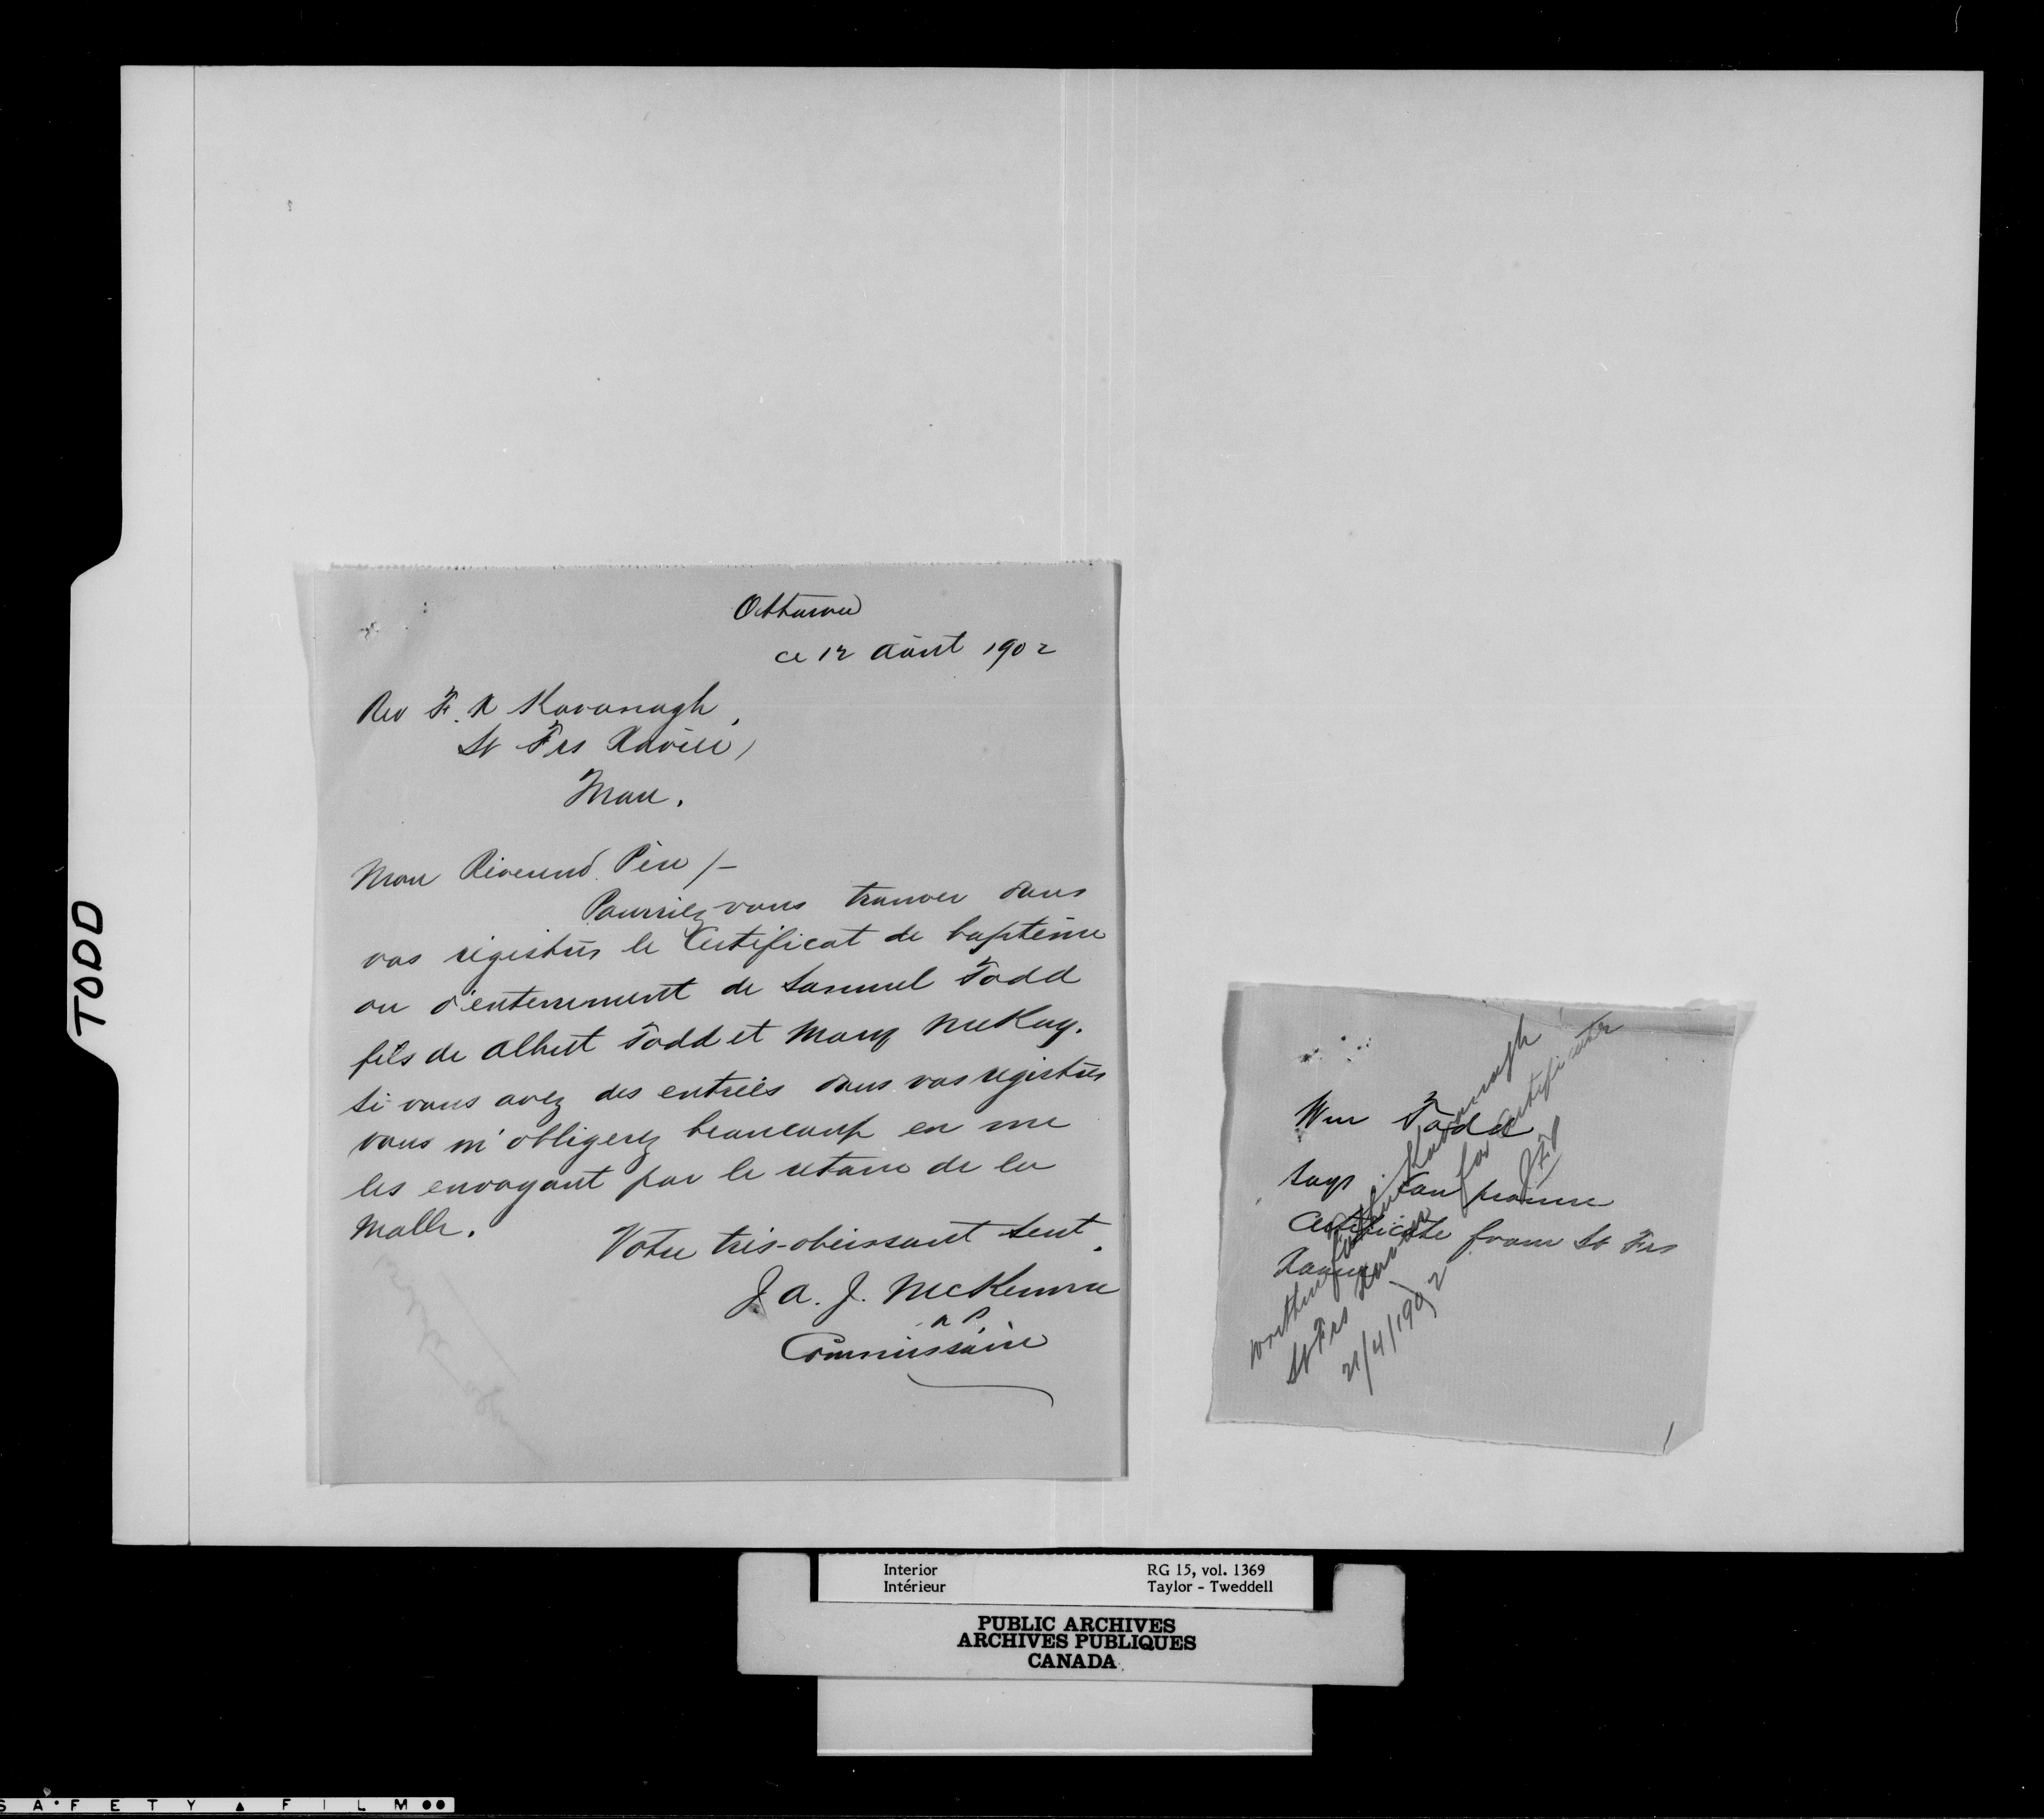 TODD
Ottawa
ce 12 Août 1902
Rev F. X Kavanagh,
St Frs Xavier,
Man.
Mon Révérend Père /-
Pourriez vous trouver dans
vos régistres le Certificat de baptême
ou d'enterrement de Samuel Todd
fils de Albert Todd et Mary McKay.
Si vous avez des entrées dans vos régistres
vous m'obligerez beaucoup en me
les envoyant par le retour de la
Malle.
Votre très-obéissant Sert.
J. A. J. McKenna
Commissaire
Wm Todd
says can procure
Certificate from St Frs
Xavier
written father Kavanagh
St Frs Xavier for certificate
21/4/1902
Interior
Intérieur
RG 15, vol. 1369
Taylor - Tweddell
PUBLIC ARCHIVES
ARCHIVES PUBLIQUES
CANADA
SAFETY FILM